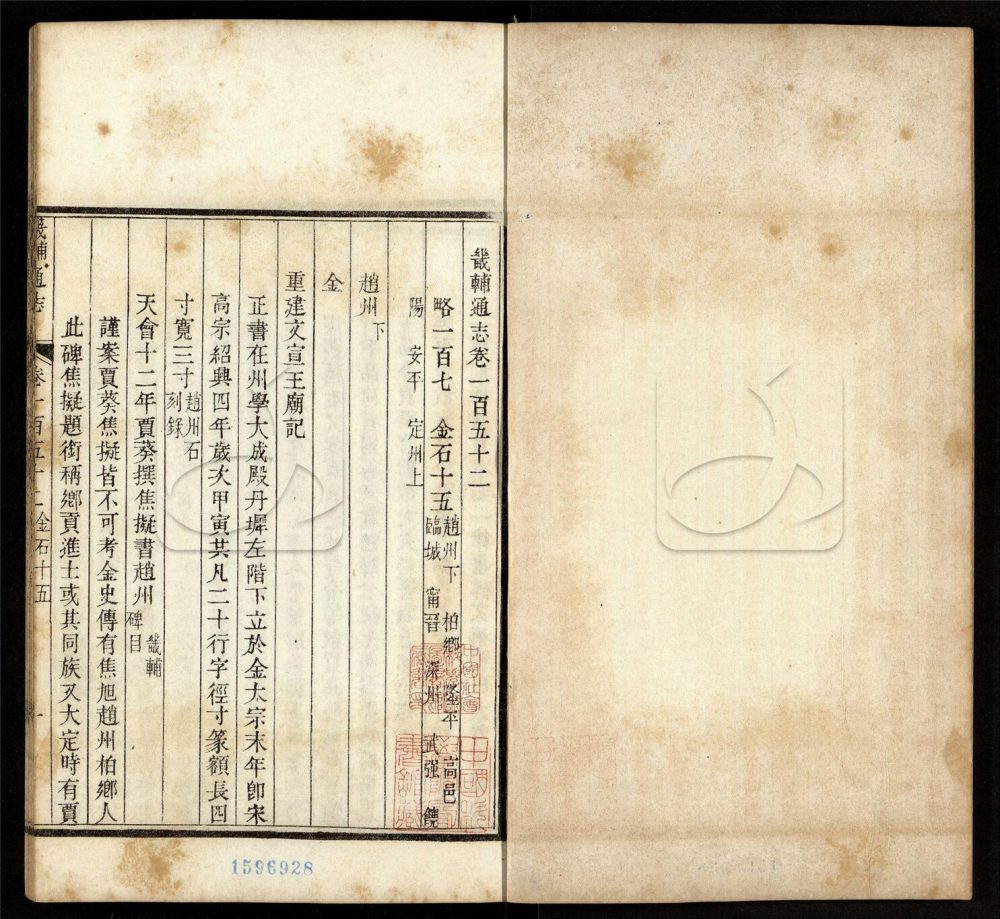 畿輔通志卷一百五十二
略一百七 金石十五 趙州下 柏鄉 隆平 高邑 臨城 甯晉 深州 武强 饒
陽 安平 定州上
趙州下
金
重建文宣王廟記
正書在州學大成殿丹墀左階下立於金太宗末年卽宋
高宗紹興四年歲次甲寅共凡二十行字徑寸篆額長四
寸寬三寸趙州石刻錄
天會十二年賈葵撰焦擬書趙州畿輔碑目
謹案賈葵焦擬皆不可考金史傳有焦旭趙州柏鄉人
此碑焦擬題銜稱鄉貢進士或其同族又大定時有賈
畿輔通志 卷一百五十二 金石十五 一
1596928